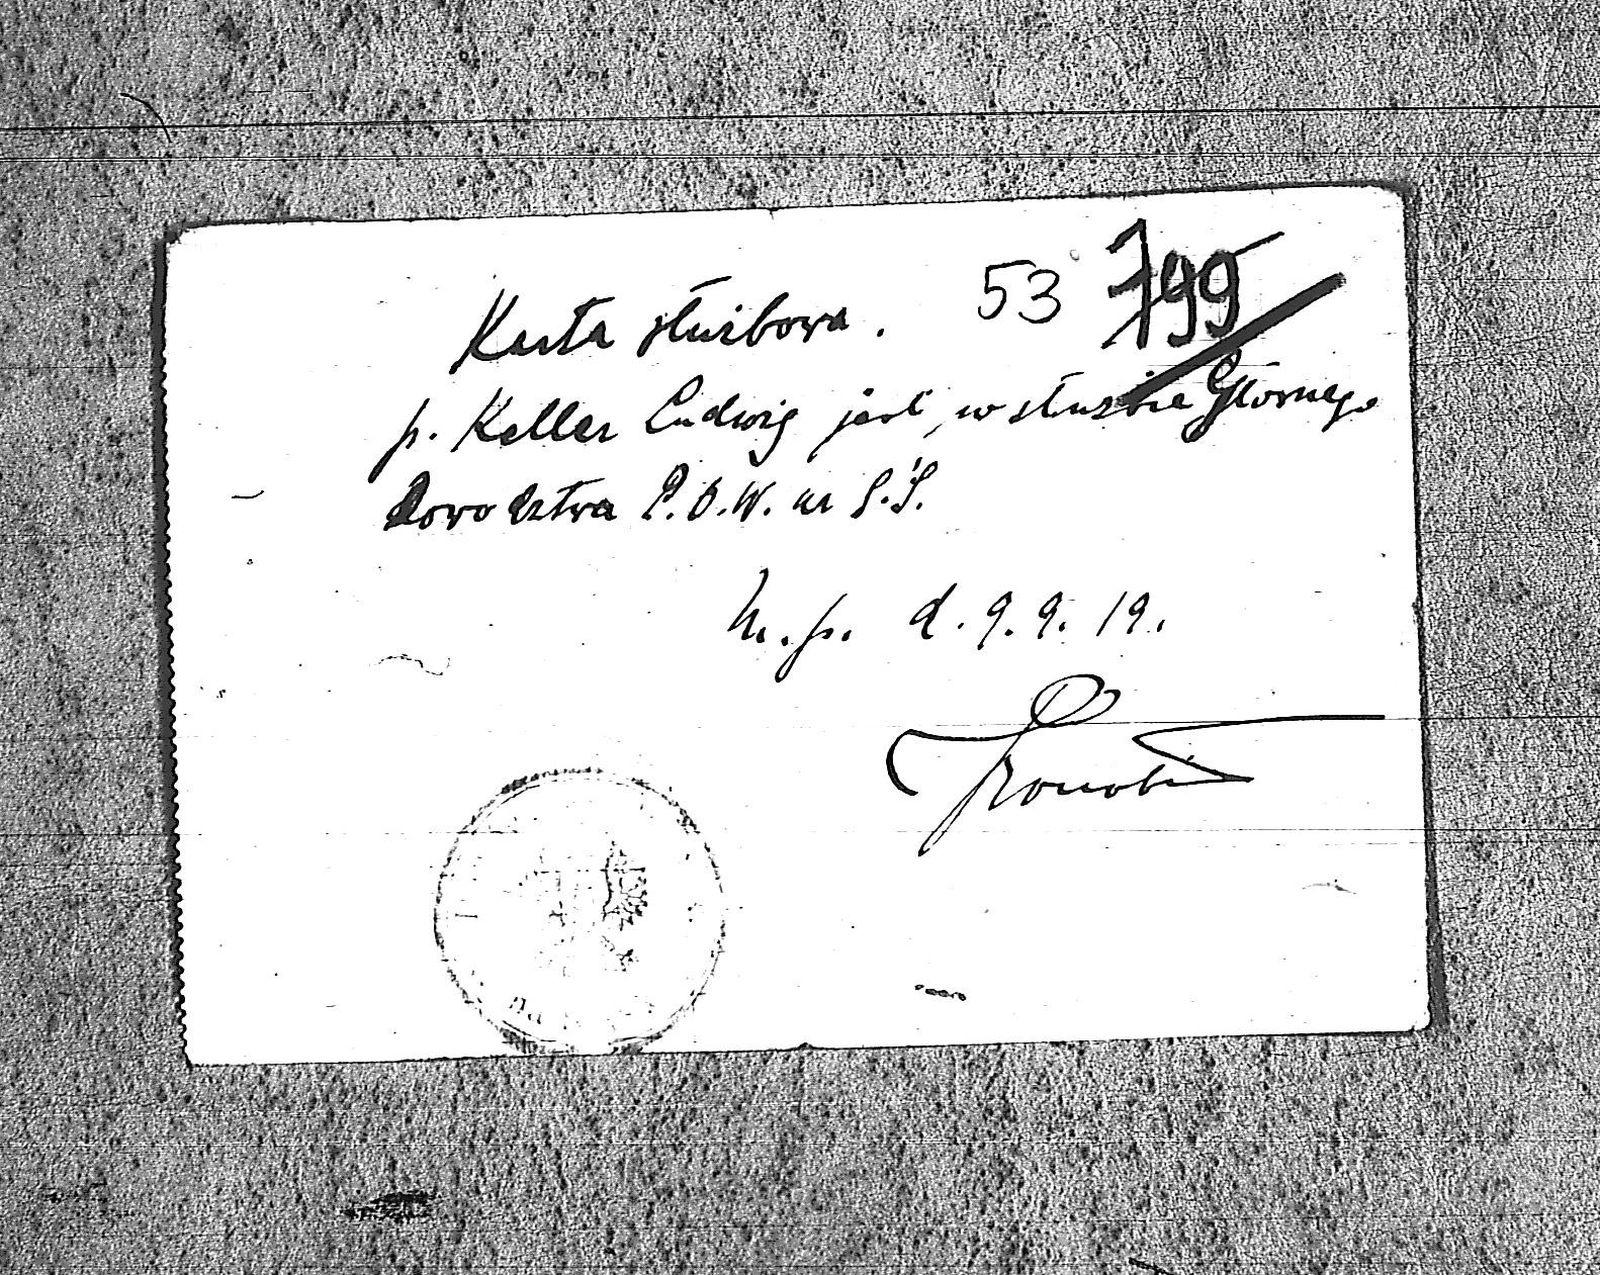 53 799
Karta służbowa.
p. Keller Ludwig jest w służbie Głównego
Dowództwa P.O.W. na G.Ś.
M.p. d. 9.9.19.
na